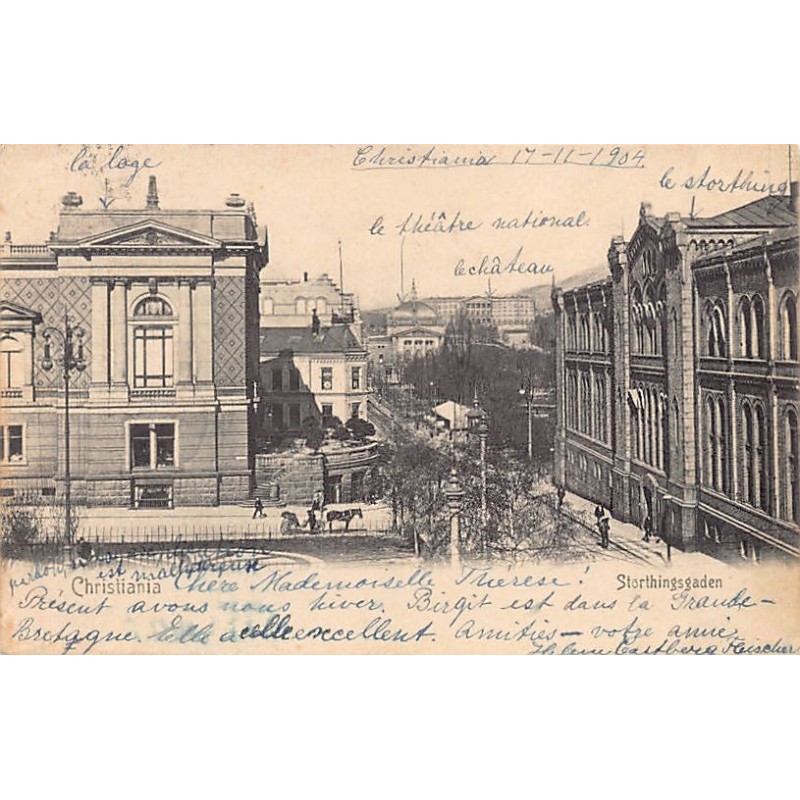 la loge
Christiania 17-11-1904
le storthing
le théâtre national.
le château
est malheureuse
Christiania
Storthingsgaden
Chère Mademoiselle Thérèse!
Présent avons nous hiver. Birgit est dans la Grande-
Bretagne. Elle a elle excellent. Amitiés – votre amie
Helene Castberg Fleischer